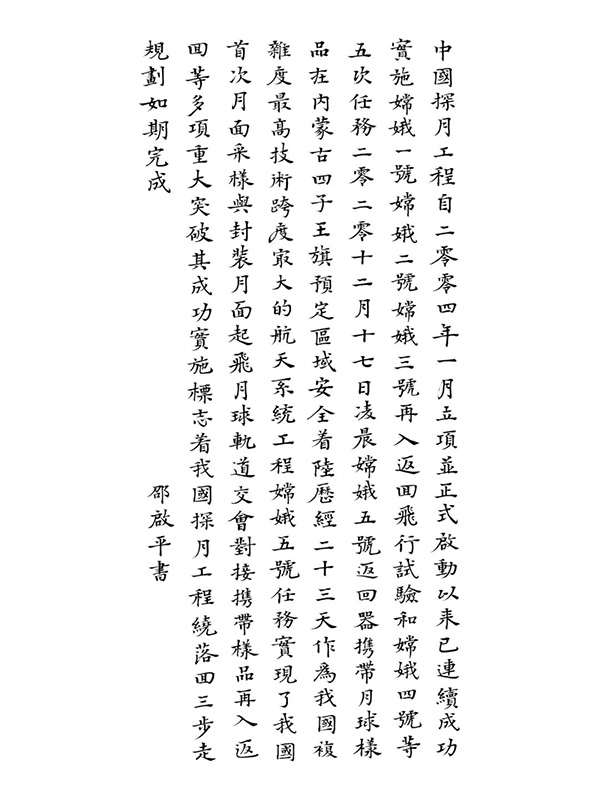 中國探月工程自二零零四年一月五項並正式啟動以来已連續成功
實施嫦娥一號嫦娥二號嫦娥三號再入返回飛行試驗和嫦娥四號等
五次任務二零二零十二月十七日凌晨嫦娥五號返回器携帶月球樣
品在内蒙古四子王旗預定區域安全着陸歷經二十三天作為我國複
雜度最高技術跨度最大的航天系統工程嫦娥五號任務實現了我國
首次月面采樣與封裝月面起飛月球軌道交會對接携帶樣品再入返
回等多項重大突破其成功實施標志着我國探月工程繞落回三步走
規劃如期完成
邵啟平書